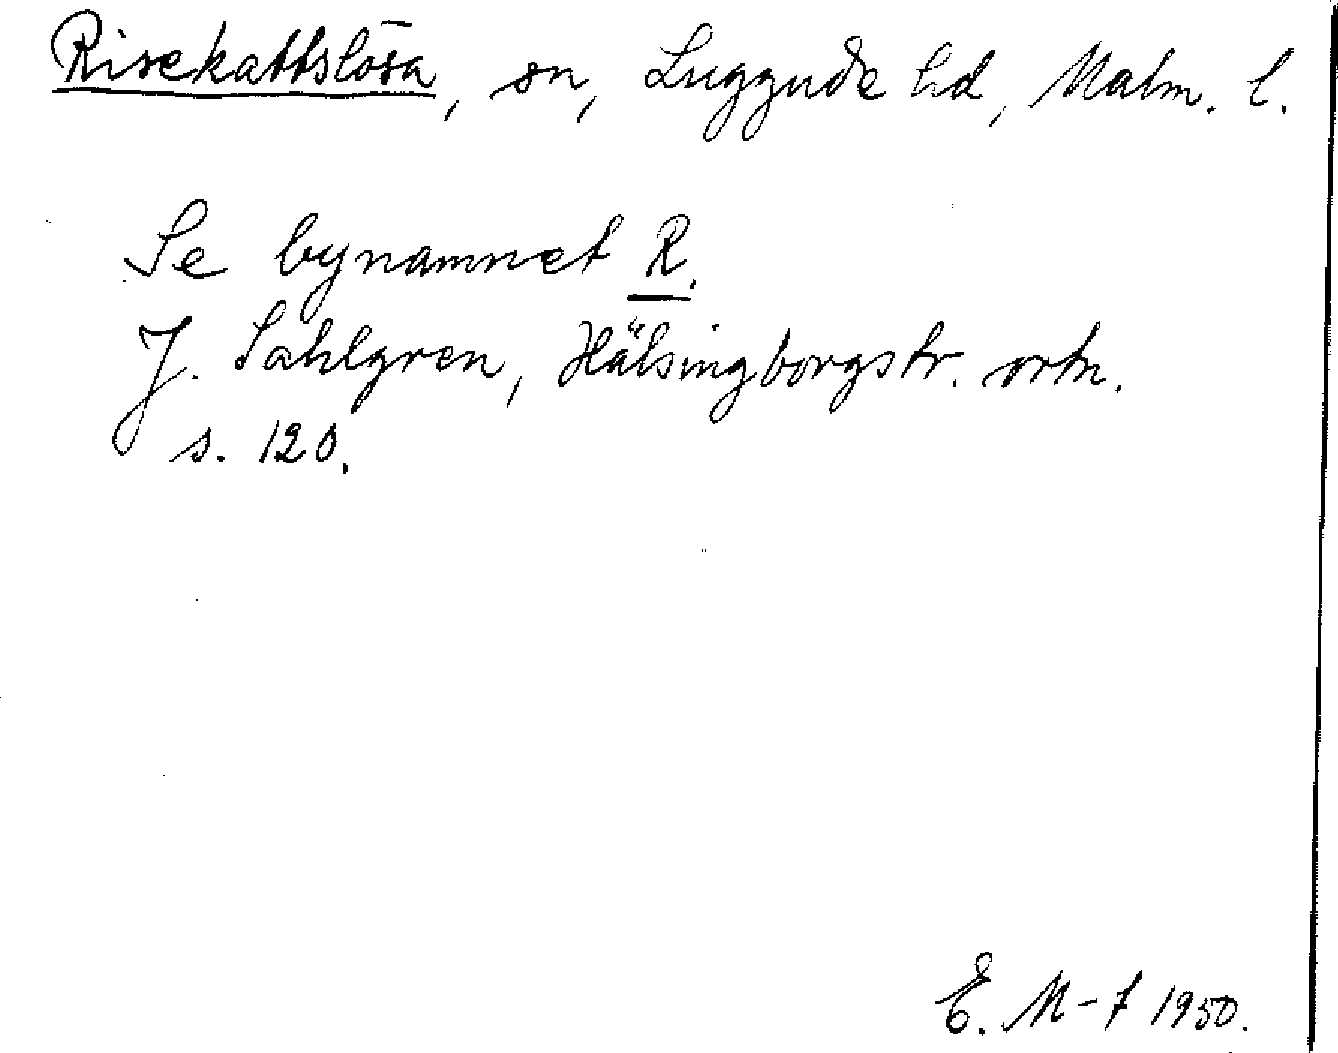 Risekattslösa, sn, Luggude hd, Malm. l.
Se bynamnet R.
J. Sahlgren, Hälsingborgstr. ortn.
s. 120.
E. M-t 1950.